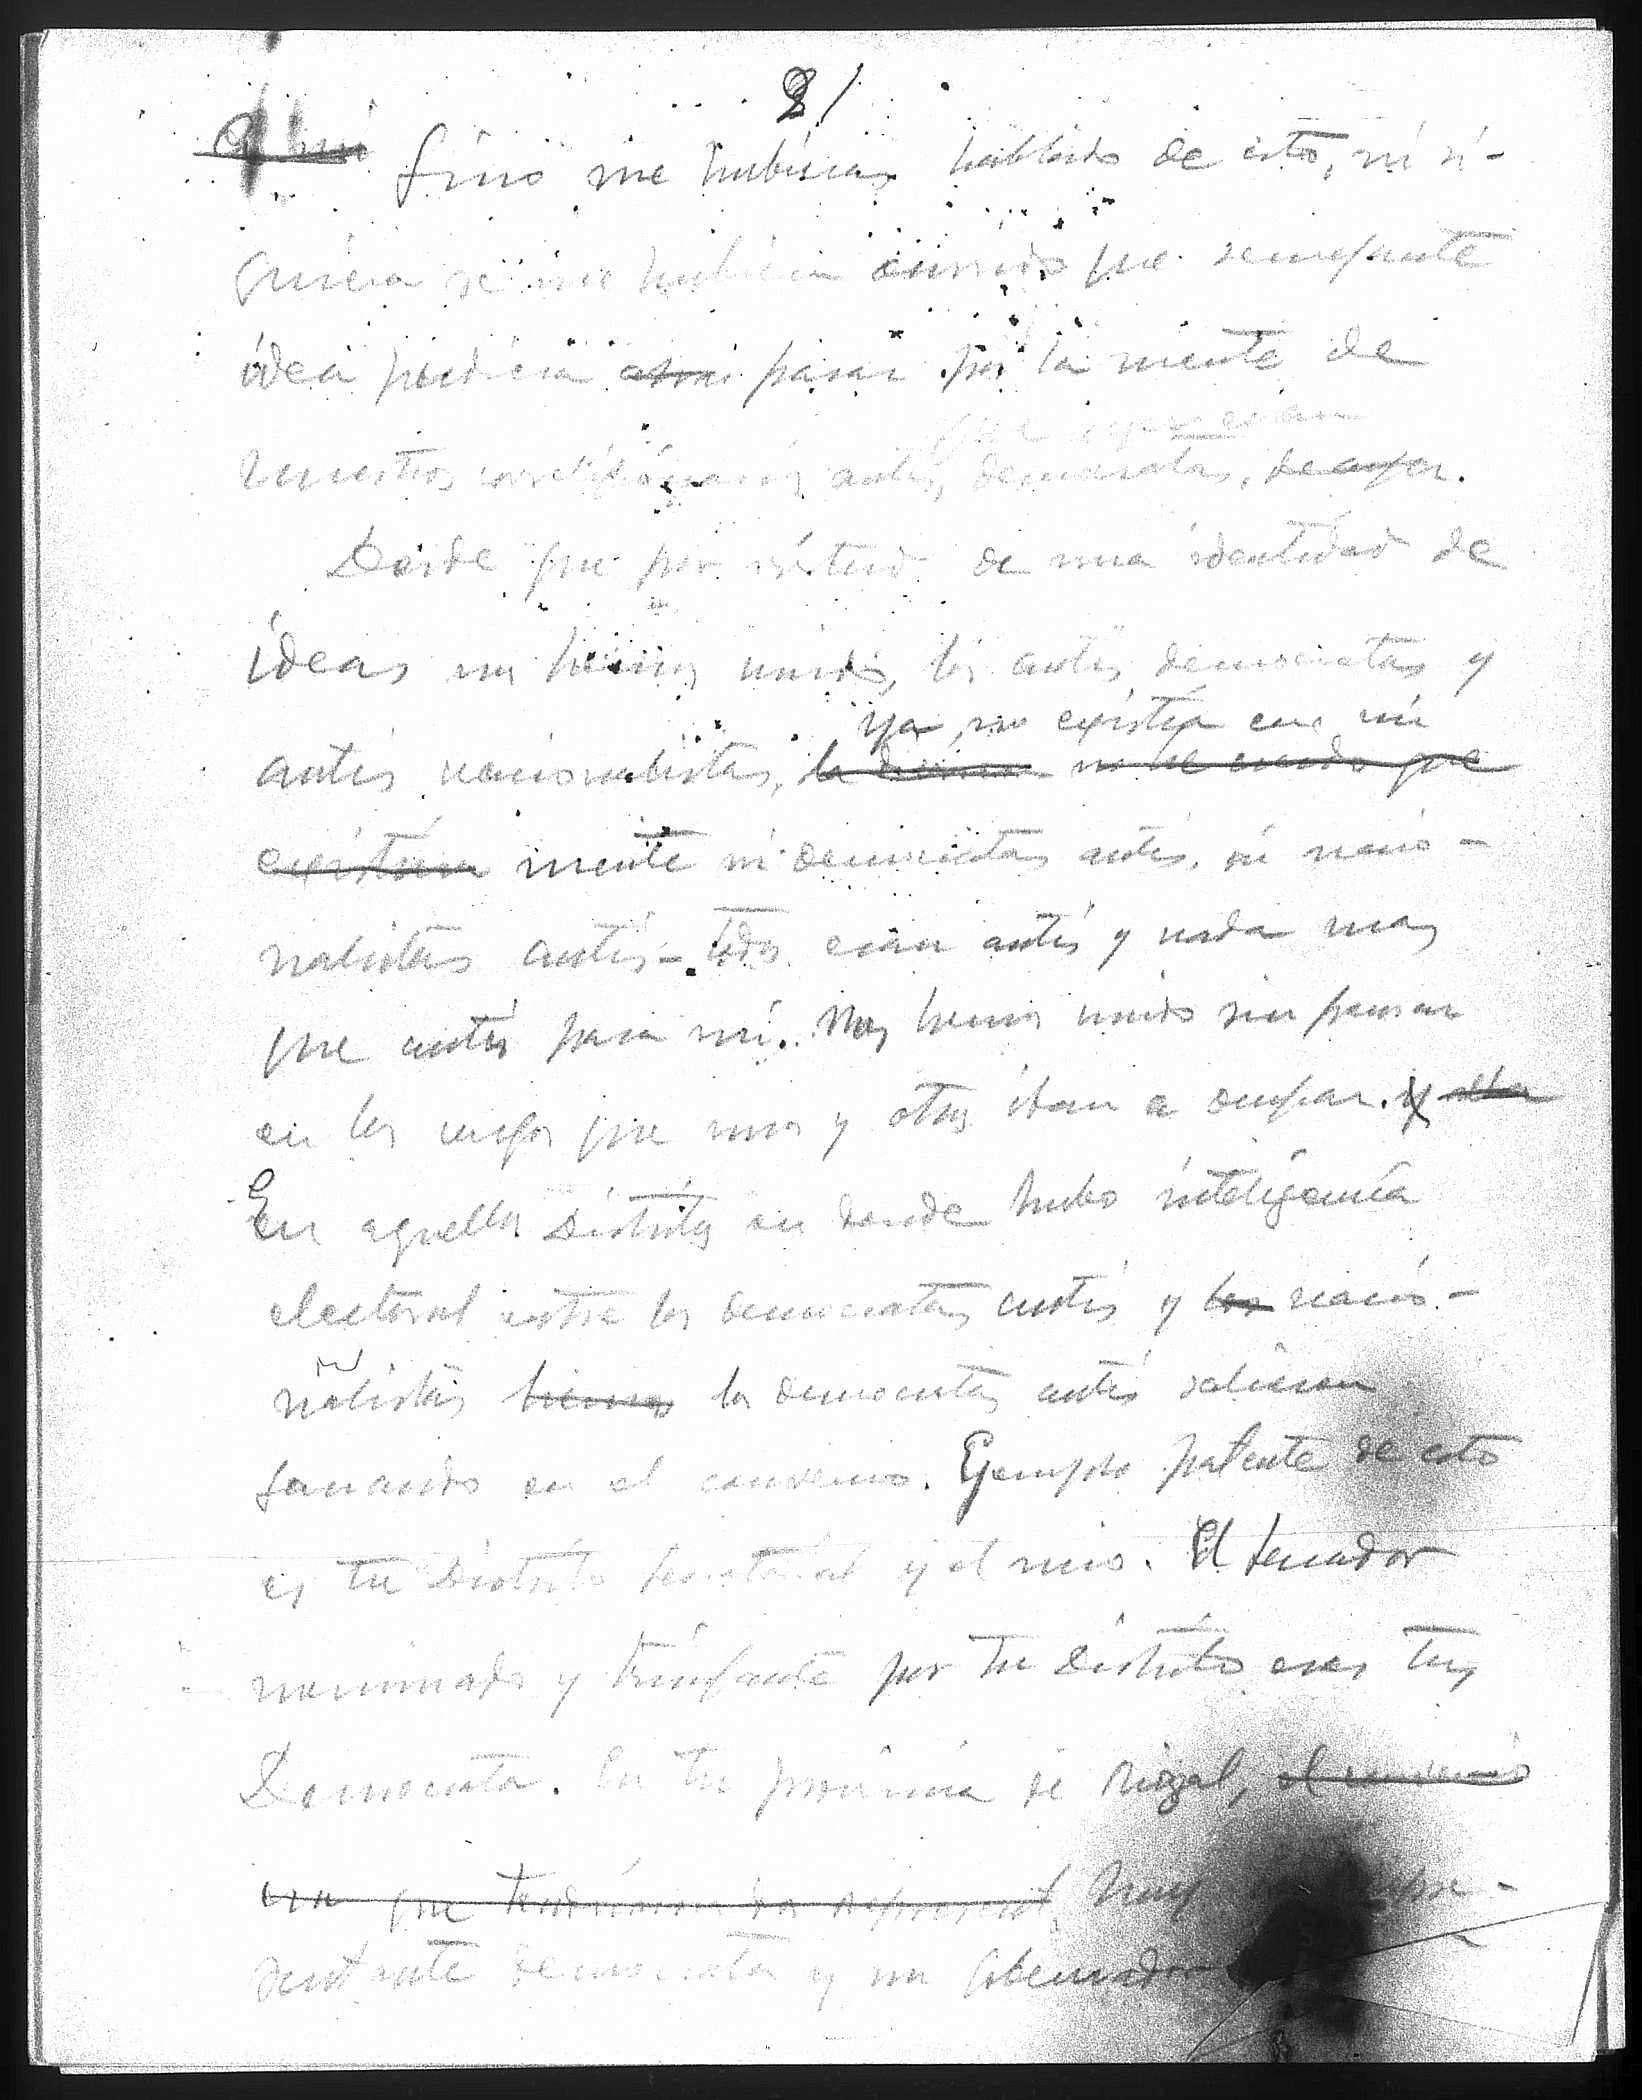 2/
A mi Sino me hubieras hablado de esto, ni si-
quiera se me hubiera ocurrido que semejante
idea pudiera pasar por la mente de
que ayer eran
nuestros correligionarios antis, democratas, de ayer.
Desde que por virtud de una identidad de
ideas nos hemos unido, los antis democratas y
ya no existia en mi
antis nacionalistas, la no he creido que
existiera mente ni democratas antis, ni nacio-
nalistas antis - todos eran antis y nada mas
que antis para mi. Nos hemos unido sin pensar
en los cargos que unos y otros iban a ocupar. y
En aquellos Distritos en donde hubo inteligencia
electoral entre los democratas antis y los nacio-
nalistas los democratas antis salieron
ganando en el convenio. Ejemplo patente de esto
es tu Distrito senatorial y el mio. El senador
nominado y triunfante por tu Distrito eres tu,
Democrata. En tu provincia de Rizal, el convenio
era que tendriamos los represent hay repre-
sentante democrata y un gobernador